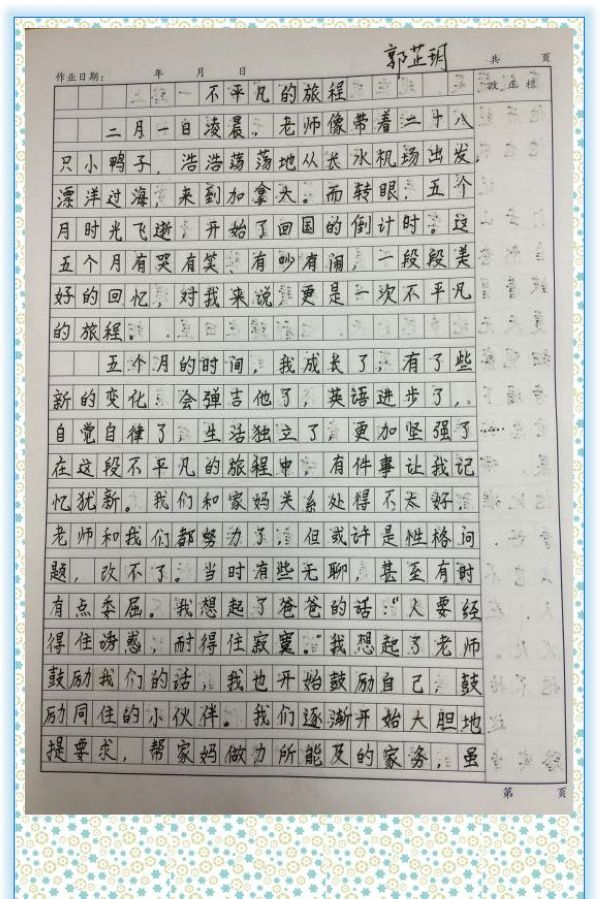 郭芷玥
作业日期： 年 月 日 共 页
改正栏
一不平凡的旅程
二月一日凌晨，老师像带着二十八
只小鸭子，浩浩荡荡地从长水机场出发，
漂洋过海，来到加拿大。而转眼，五个
月时光飞逝，开始了回国的倒计时。这
五个月有哭有笑，有吵有闹，一段段美
好的回忆，对我来说，更是一次不平凡
的旅程。
五个月的时间，我成长了，有了些
新的变化，会弹吉他了，英语进步了，
自觉自律了，生活独立了，更加坚强了……
在这段不平凡的旅程中，有件事让我记
忆犹新。我们和家妈关系处得不太好，
老师和我们都努力了，但或许是性格问
题，改不了。当时有些无聊，甚至有时
有点委屈。我想起了爸爸的话：“人要经
得住诱惑，耐得住寂寞。”我想起了老师
鼓励我们的话，我也开始鼓励自己，鼓
励同住的小伙伴。我们逐渐开始大胆地
提要求，帮家妈做力所能及的家务，虽
第 页